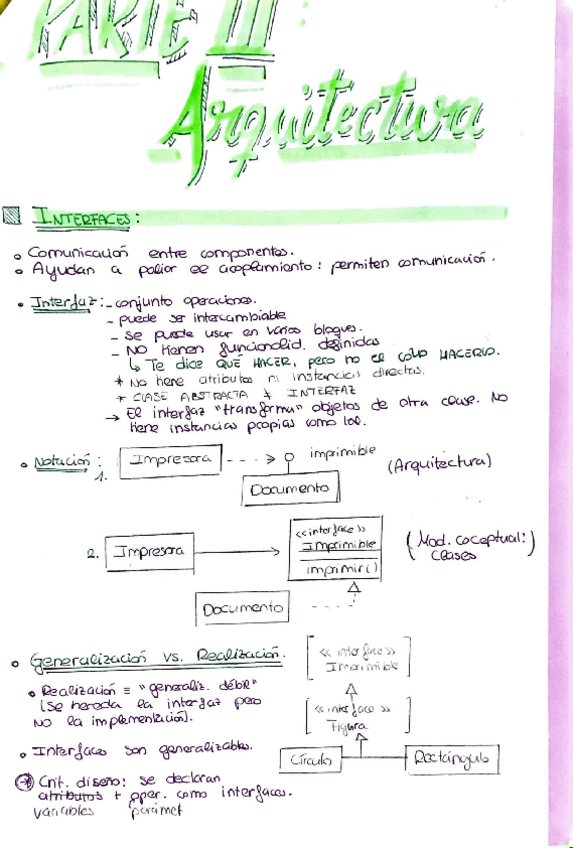 PARTE III
Arquitectura
INTERFACES:
Comunicación entre componentes.
Ayudan a paliar el acoplamiento: permiten comunicación.
Interfaz: - conjunto operaciones.
- puede ser intercambiable
- se puede usar en varios bloques.
- NO tienen funcionalid. definidas
↳ Te dice QUÉ HACER, pero no el CÓMO HACERLO.
* No tiene atributos ni instancias directas.
* CLASE ABSTRACTA ≠ INTERFAZ
→ El interfaz "transforma" objetos de otra clase. No
tiene instancias propias como tal.
Notación:
1. Impresora imprimible (Arquitectura)
Documento
2. Impresora <<interface>> Imprimible imprimir() (Mod. coceptual: clases)
Documento
Generalización vs. Realización.
<<interface>> Imprimible
Realización ≡ "generaliz. débil"
(Se hereda la interfaz pero
NO la implementación).
<<interface>> Figura
Interfaces son generalizables.
Círculo Rectángulo
Crit. diseño: se declaran
atributos + oper. como interfaces.
variables parámet